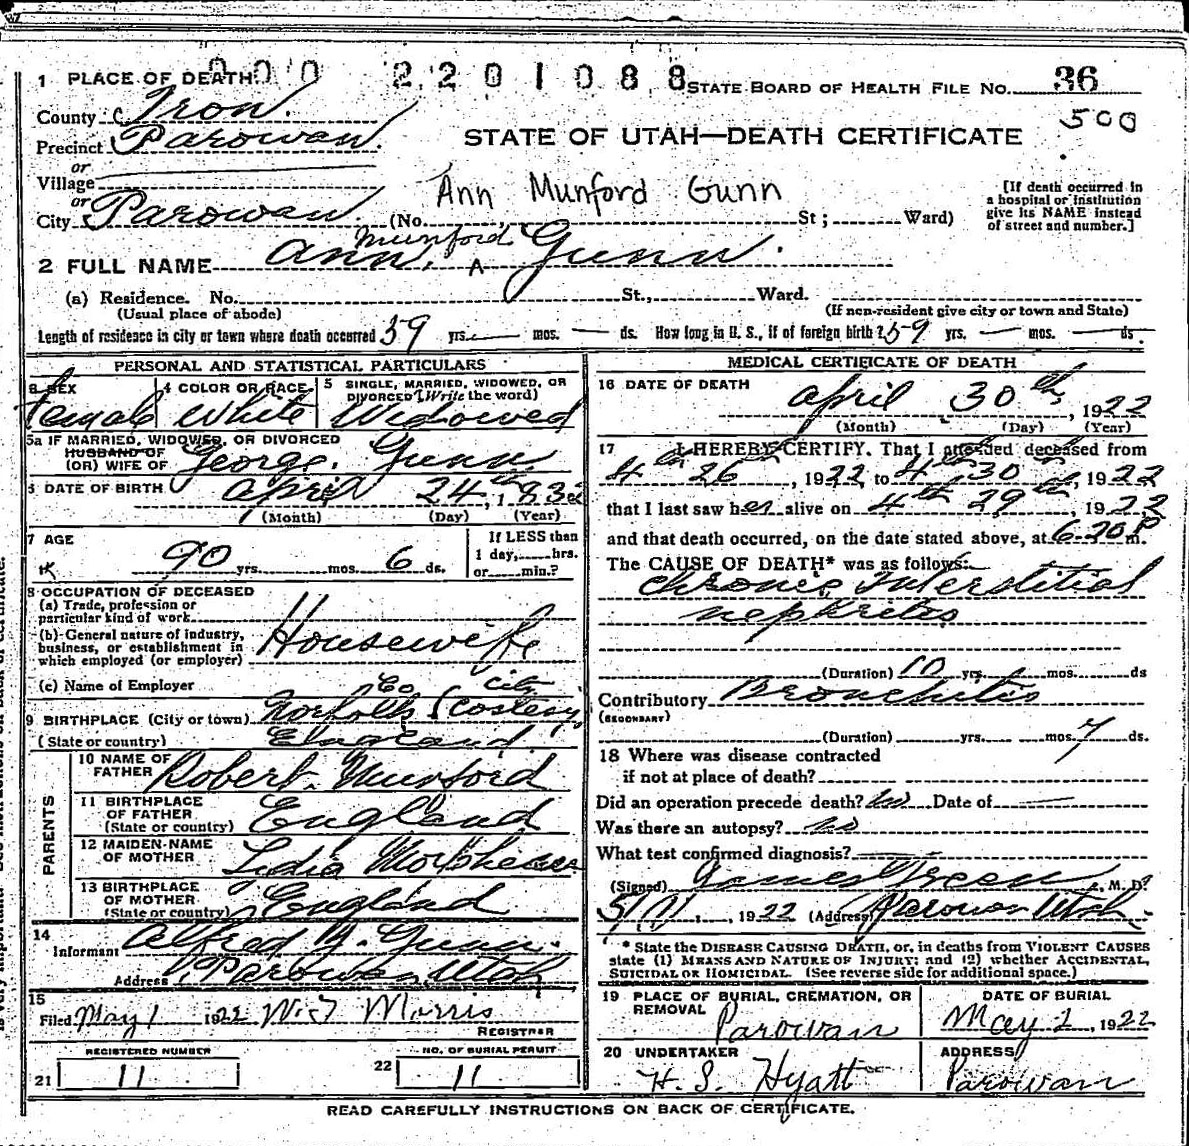 000 2201088
1 PLACE OF DEATH.
STATE BOARD OF HEALTH FILE NO. 36
County Iron.
500
Precinct Parowan.
STATE OF UTAH—DEATH CERTIFICATE
or
Village
Ann Munford Gunn
[If death occurred in a hospital or institution give its NAME instead of street and number.]
or
City Parowan. (No. St; Ward)
Munford
2 FULL NAME Ann. A Gunn.
(a) Residence. No. St., Ward.
(Usual place of abode) (If non-resident give city or town and State)
Length of residence in city or town where death occurred 59 yrs. — mos. — ds. How long in U. S., if of foreign birth? 59 yrs. — mos. — ds.
PERSONAL AND STATISTICAL PARTICULARS
3 SEX 4 COLOR OR RACE 5 SINGLE, MARRIED, WIDOWED, OR DIVORCED (Write the word)
Female White Widowed
5a IF MARRIED, WIDOWED, OR DIVORCED
HUSBAND OF
(OR) WIFE OF George. Gunn
6 DATE OF BIRTH April 24th, 1832
(Month) (Day) (Year)
7 AGE If LESS than
1 day, hrs.
90 yrs. mos. 6 ds. or min.?
8 OCCUPATION OF DECEASED
(a) Trade, profession or
particular kind of work
(b) General nature of industry,
business, or establishment in
which employed (or employer) Housewife
(c) Name of Employer
Co City
9 BIRTHPLACE (City or town) Norfolk
(State or country) England.
PARENTS
10 NAME OF FATHER Robert Munford
11 BIRTHPLACE OF FATHER (State or country) England
12 MAIDEN NAME OF MOTHER Lydia
13 BIRTHPLACE OF MOTHER (State or country) England
14
Informant Alfred Gunn.
Address Parowan, Utah
15
Filed May 1 1922 Morris
REGISTRAR
REGISTERED NUMBER NO. OF BURIAL PERMIT
21 11 22 11
MEDICAL CERTIFICATE OF DEATH
16 DATE OF DEATH
April 30th, 1922
(Month) (Day) (Year)
17 I HEREBY CERTIFY. That I attended deceased from
4th 26, 1922, to 4th 30th, 1922
that I last saw her alive on 4th 29th, 1922
and that death occurred, on the date stated above, at 6-20 P m.
The CAUSE OF DEATH* was as follows:
Chronic Interstitial
nephritis
(Duration) 10 yrs. mos. ds
Contributory Bronchitis
(SECONDARY)
(Duration) yrs. mos. 7 ds.
18 Where was disease contracted
if not at place of death?
Did an operation precede death? no Date of —
Was there an autopsy? no
What test confirmed diagnosis?
(Signed) James Green, M. D.
5/1, 1922 (Address) Parowan Utah.
* State the DISEASE CAUSING DEATH, or, in deaths from VIOLENT CAUSES
state (1) MEANS AND NATURE OF INJURY; and (2) whether ACCIDENTAL,
SUICIDAL OR HOMICIDAL. (See reverse side for additional space.)
19 PLACE OF BURIAL, CREMATION, OR REMOVAL DATE OF BURIAL
Parowan May 2, 1922
20 UNDERTAKER ADDRESS
H. S. Hyatt Parowan
READ CAREFULLY INSTRUCTIONS ON BACK OF CERTIFICATE.